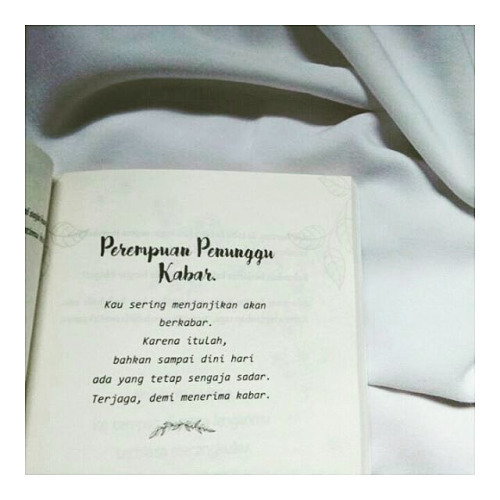 Perempuan Penunggu
Kabar.
Kau sering menjanjikan akan
berkabar.
Karena itulah,
bahkan sampai dini hari
ada yang tetap sengaja sadar.
Terjaga, demi menerima kabar.